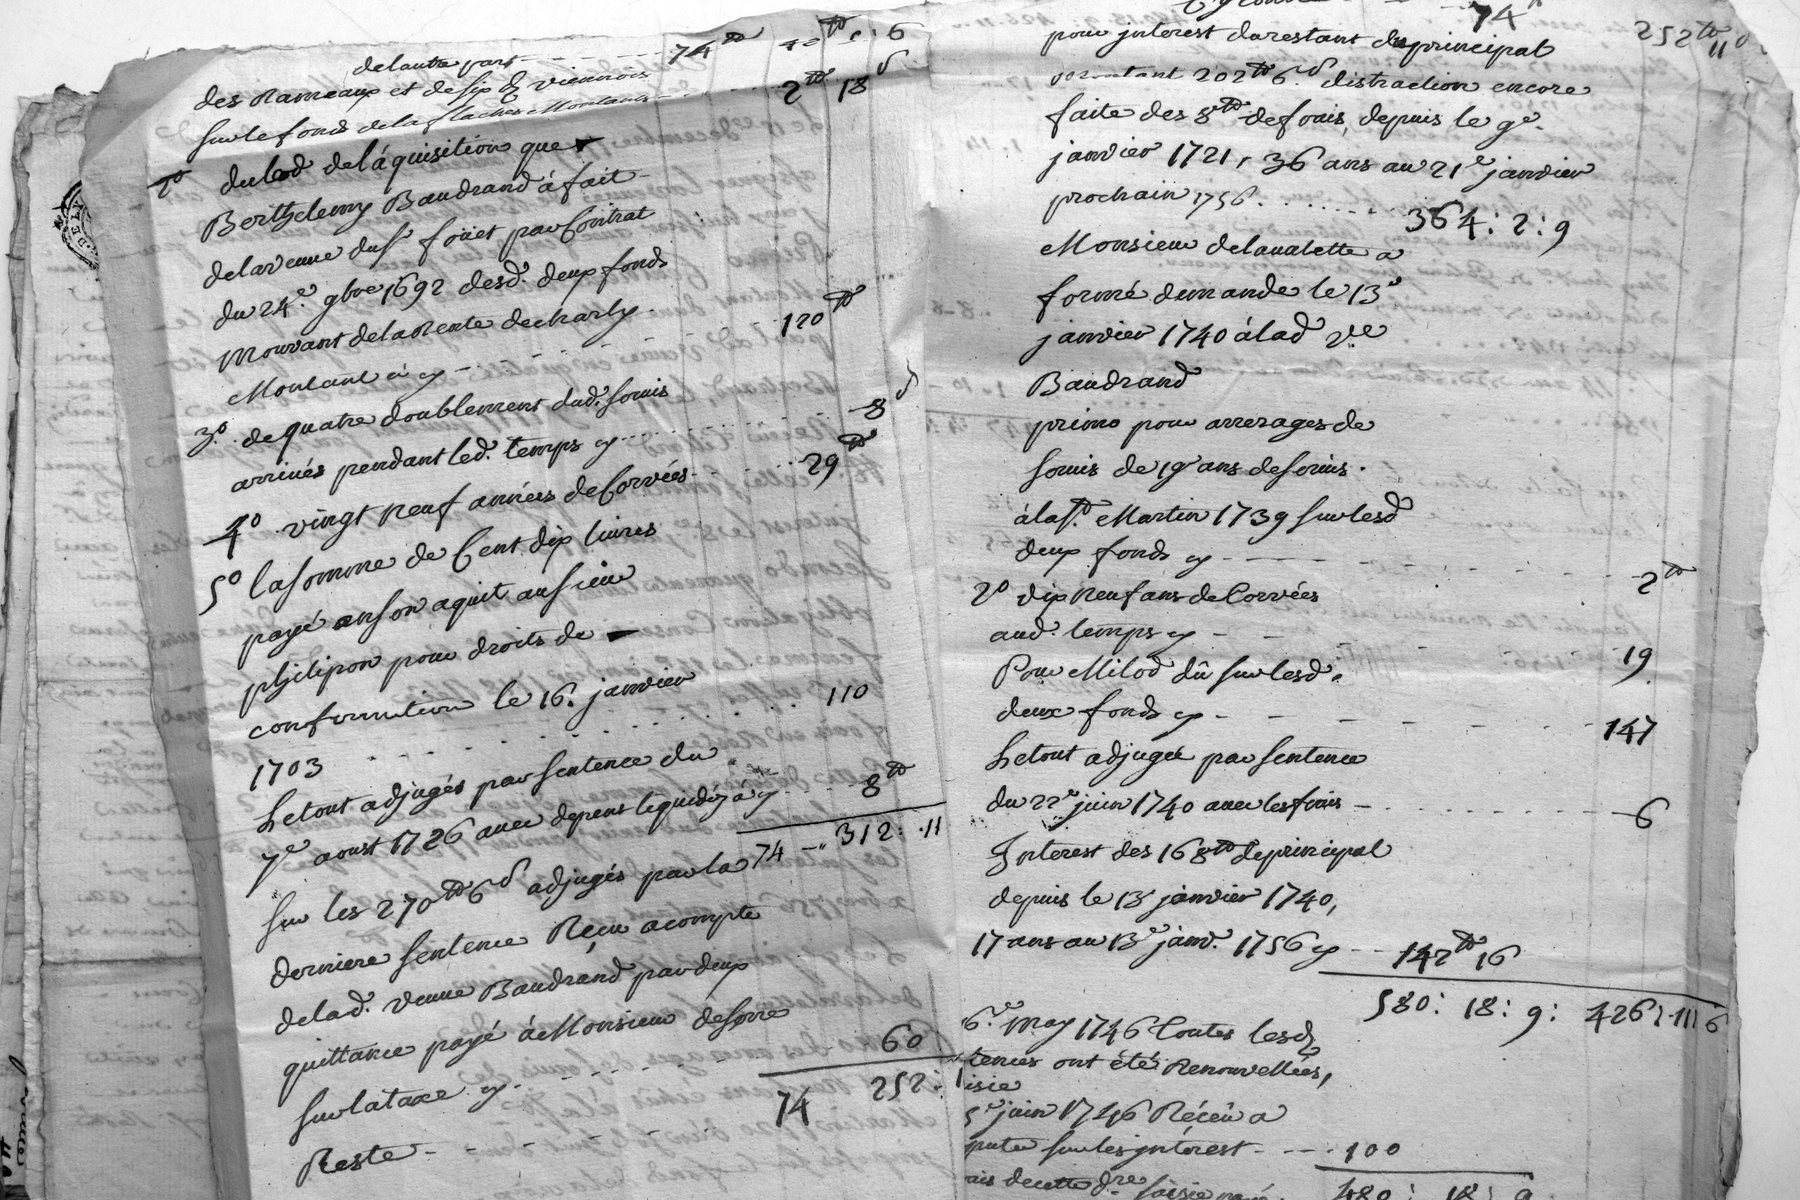 delautre part 74tt
des Rameaux et de six d. viennois
sur le fonds de la flaches Montant 2tt 18 d
2o du lod de l'áquisition que
Berthelemy Baudrand à fait
de la veuve du Sr foüet par Contrat
du 24e. 9bre 1692 desd. deux fonds
Mouvant de la Rente de charly.
Montant à cy 120tt
3o. de quatre doublement dud. servis
arrivés pendant led. temps cy 8 d
4o vingt neuf années de Corvées 29tt
5o la somme de Cent dix livres
payé an son aquit au sieur
philipon pour droits de
confirmation le 16. janvier
1703 110
Le tout adjugés par sentence du
7e aoust 1726 avec depens liquidéz á cy 8tt
74 312: 11
sur les 270tt 6d adjugés par la
derniere sentence Reçu acompte
de lad. veuve Baudrand par deux
quittance payé à Monsieur de
sur la taxe cy 60
Reste 74 252:
74
252tt 11
pour jnterest du restant du principal
montant 202tt 6d distraction encore
faite des 8tt de frais, depuis le 9e.
janvier 1721, 36 ans au 21e janvier
prochain 1756 364: 2: 9
Monsieur delavalette a
formé demande le 13e
janvier 1740 á lad ve
Baudrand
primo pour arrerages de
servis de 19 ans de servis.
á la St. Martin 1739 sur lesd
deux fonds cy 2tt
2o dix neuf ans de Corvées
aud. temps cy 19
Pour Milod dû sur lesd.
deux fonds cy 147
Le tout adjugée par sentence
du 22e juin 1740 avec les frais 6
Jnterest des 168tt de principal
depuis le 13 janvier 1740,
17 ans au 13e janv. 1756 cy 142tt 16
580: 18: 9: 426: 11 6
6e. may 1746 toutes lesd
tences ont été Renouvellées,
isie
5e juin 1746 Réçeû a
pute sur les jnterest 100
ais de cette dre saisie
480: 18: 9